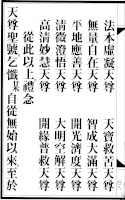 法本虛凝天尊　天寶救苦天尊
無量自在天尊　智成大滿天尊
平地應善天尊　開光濟度天尊
清微澄悟天尊　大明空解天尊
高清妙慧天尊　開緣普救天尊
從此以上禮念
天尊聖號乞懺某自從無始以來至於